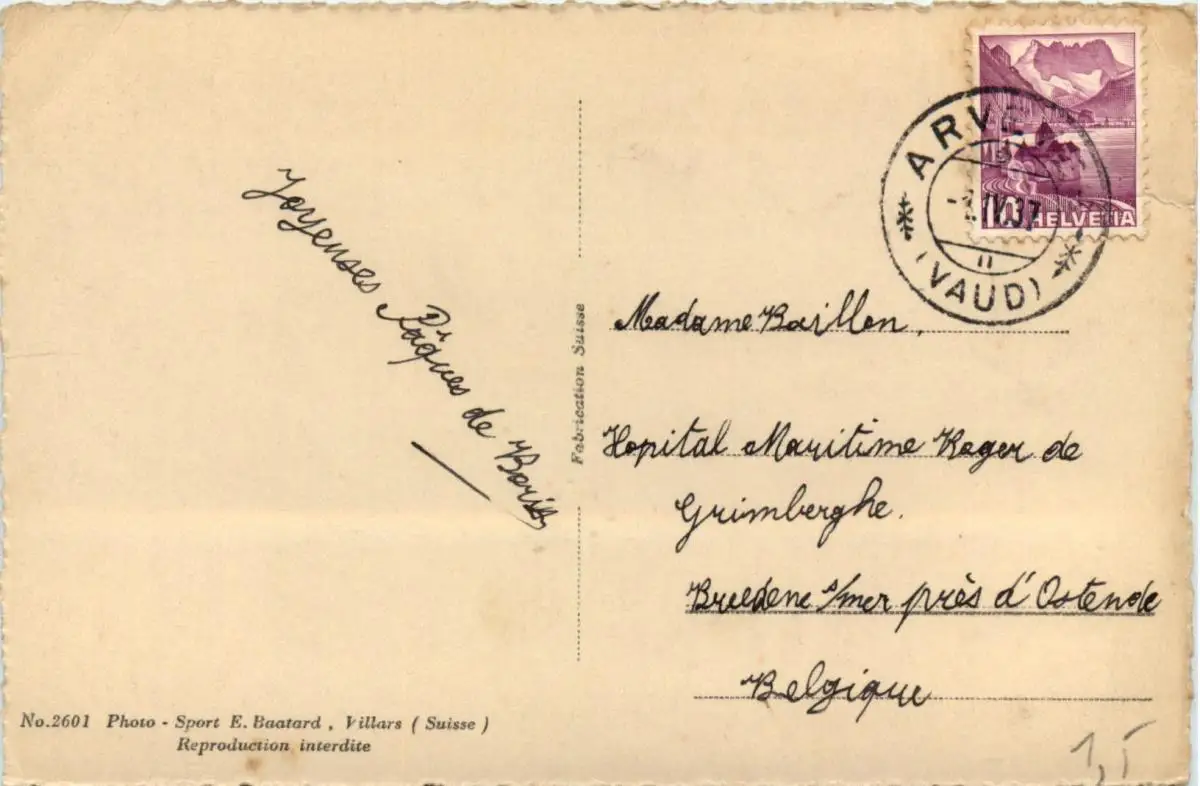 Joyeuses Pâques de Boris
Fabrication Suisse
No.2601 Photo - Sport E. Baatard, Villars ( Suisse )
Reproduction interdite
10 HELVETIA
ARVE
IV.37
(VAUD)
Madame Baillon,
Hopital Maritime Roger de
Grimberghe.
Breedene s/mer près d'Ostende
Belgique